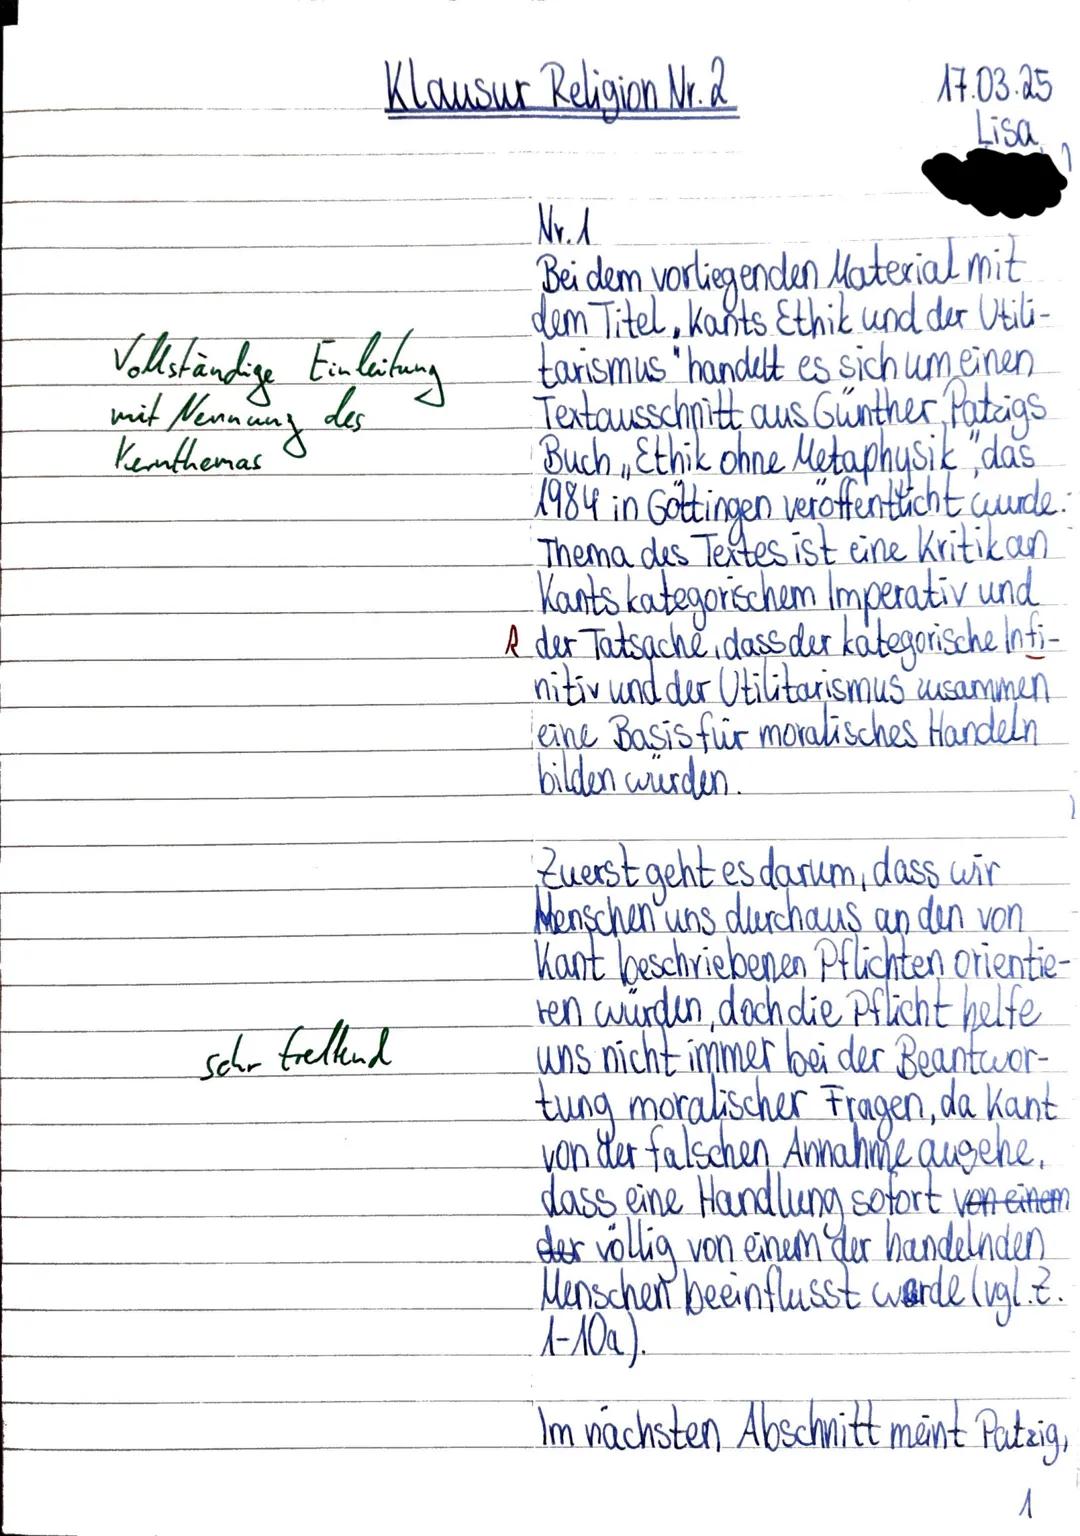 Klausur Religion Nr. 2
17.03.25
Lisa
Nr. 1
Bei dem vorliegenden Material mit
dem Titel „Kants Ethik und der Utili-
tarismus" handelt es sich um einen
Textausschnitt aus Günther Patzigs
Buch „Ethik ohne Metaphysik", das
1984 in Göttingen veröffentlicht wurde.
Thema des Textes ist eine Kritik an
Kants kategorischem Imperativ und
R der Tatsache, dass der kategorische Infi-
nitiv und der Utilitarismus zusammen
eine Basis für moralisches Handeln
bilden würden.
Vollständige Einleitung
mit Nennung des
Kernthemas
Zuerst geht es darum, dass wir
Menschen uns durchaus an den von
Kant beschriebenen Pflichten orientie-
ren würden, doch die Pflicht helfe
uns nicht immer bei der Beantwor-
tung moralischer Fragen, da Kant
von der falschen Annahme ausgehe,
dass eine Handlung sofort von einem
der völlig von einem der handelnden
Menschen beeinflusst werde (vgl. Z.
1-10a).
sehr treffend
Im nächsten Abschnitt meint Patzig,
1